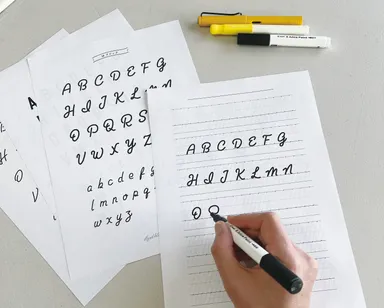 A B C D E F G
H I J K L M N
O P Q R S
V W X Y Z
a b c d e f g
l m n o p q
w x y z
A B C D E F G
H I J K L M N
O